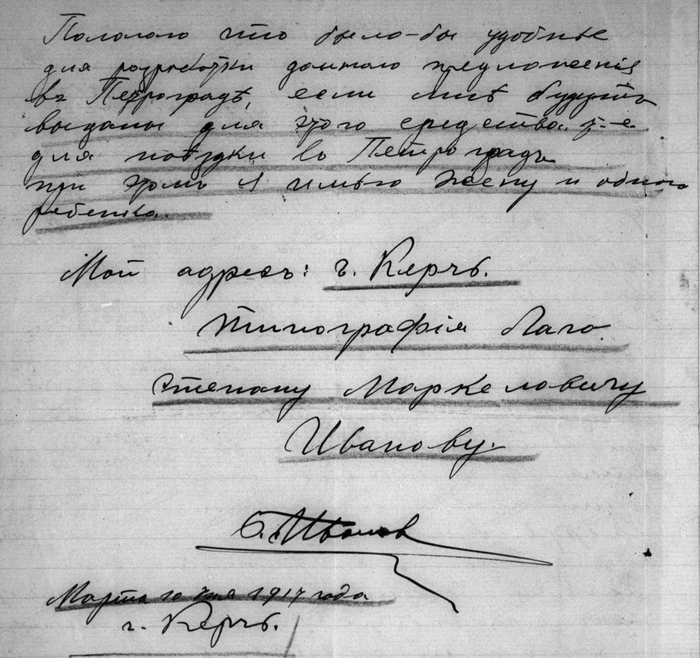 Полагаю что было-бы удобнѣе
для разработки даннаго предложенія
въ Петроградѣ, если мнѣ будутъ
выданы для этого средства. т-е
для поѣздки въ Петроградъ
при чемъ я имѣю жену и одного
ребенка.
Мой адресъ: г. Керчь.
типографія Лаго.
Степану Маркеловичу
Иванову.
С. Ивановъ
Марта 10 дня 1917 года
г. Керчь.